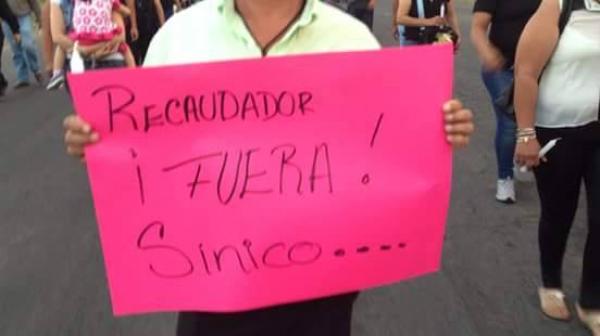 RECAUDADOR
¡FUERA!
Sinico....